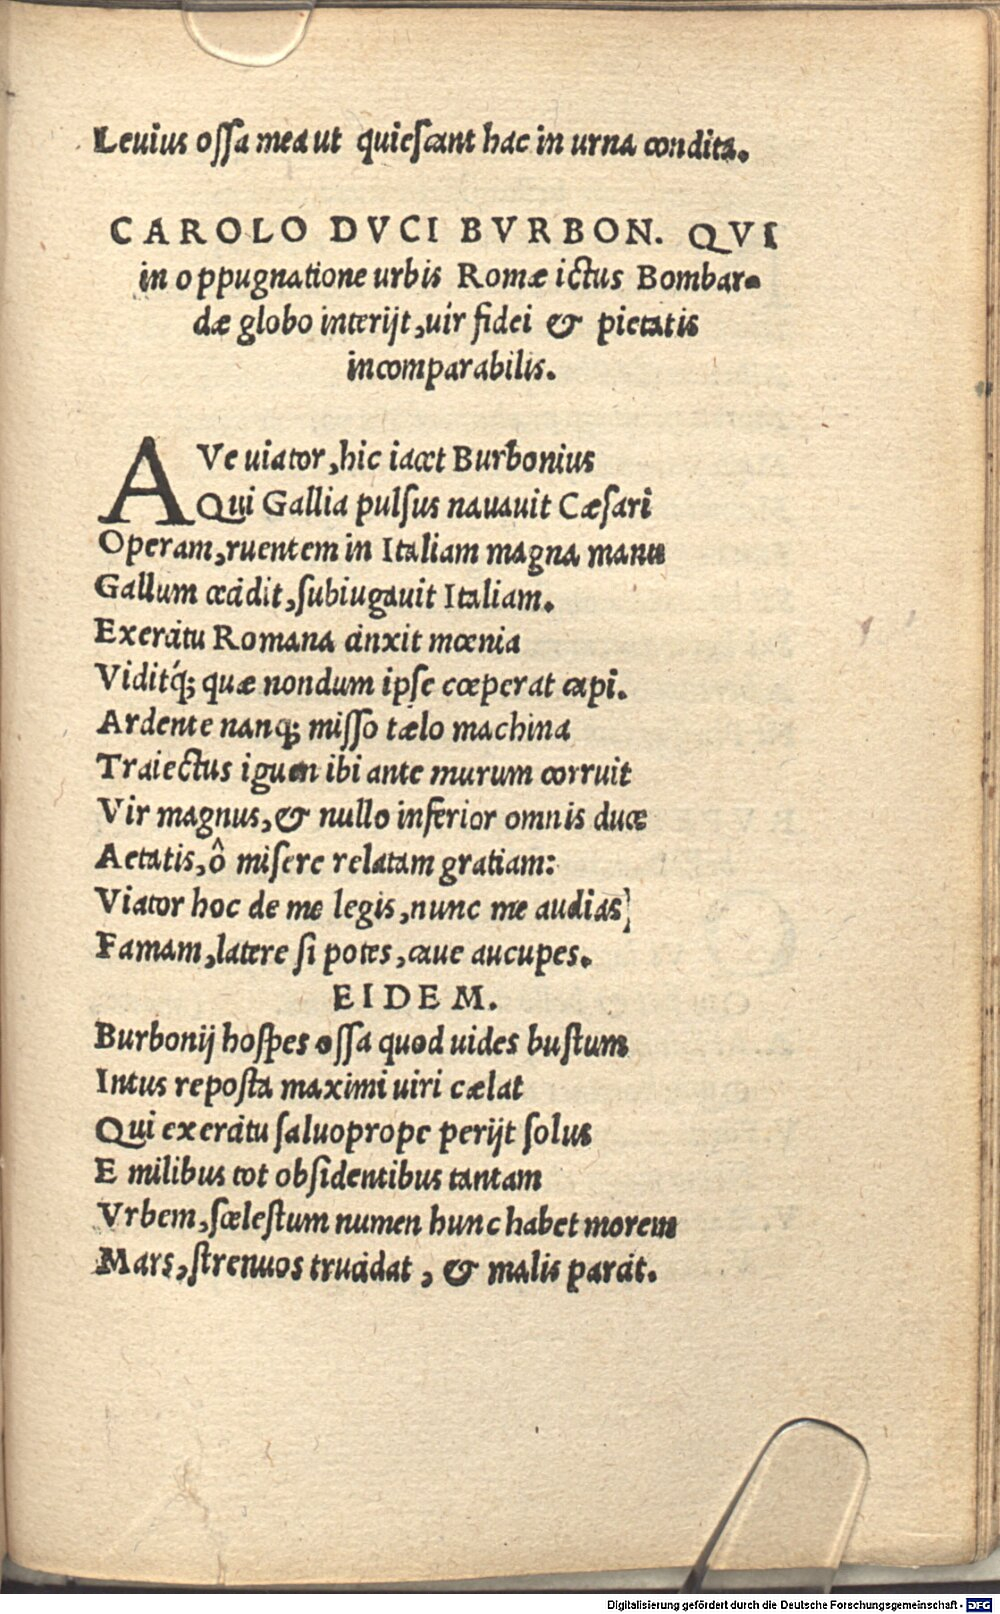 Leuius ossa mea ut quiescant hac in urna condita.
CAROLO DVCI BVRBON. QVI
in oppugnatione urbis Romæ ictus Bombar-
dæ globo interijt, uir fidei & pietatis
incomparabilis.
AVe uiator, hic iacet Burbonius
Qui Gallia pulsus nauauit Cæsari
Operam, ruentem in Italiam magna manu
Gallum cecidit, subiugauit Italiam.
Exercitu Romana cinxit mœnia
Viditq́; quæ nondum ipse cœperat capi.
Ardente nanq; misso tælo machina
Traiectus iguen ibi ante murum corruit
Vir magnus, & nullo inferior omnis duce
Aetatis, ô misere relatam gratiam:
Viator hoc de me legis, nunc me audias
Famam, latere si potes, caue aucupes.
EIDEM.
Burbonij hospes ossa quod uides bustum
Intus reposta maximi uiri cælat
Qui exercitu saluo prope perijt solus
E milibus tot obsidentibus tantam
Vrbem, scelestum numen hunc habet morem
Mars, strenuos trucidat, & malis parcit.
Digitalisierung gefördert durch die Deutsche Forschungsgemeinschaft - DFG